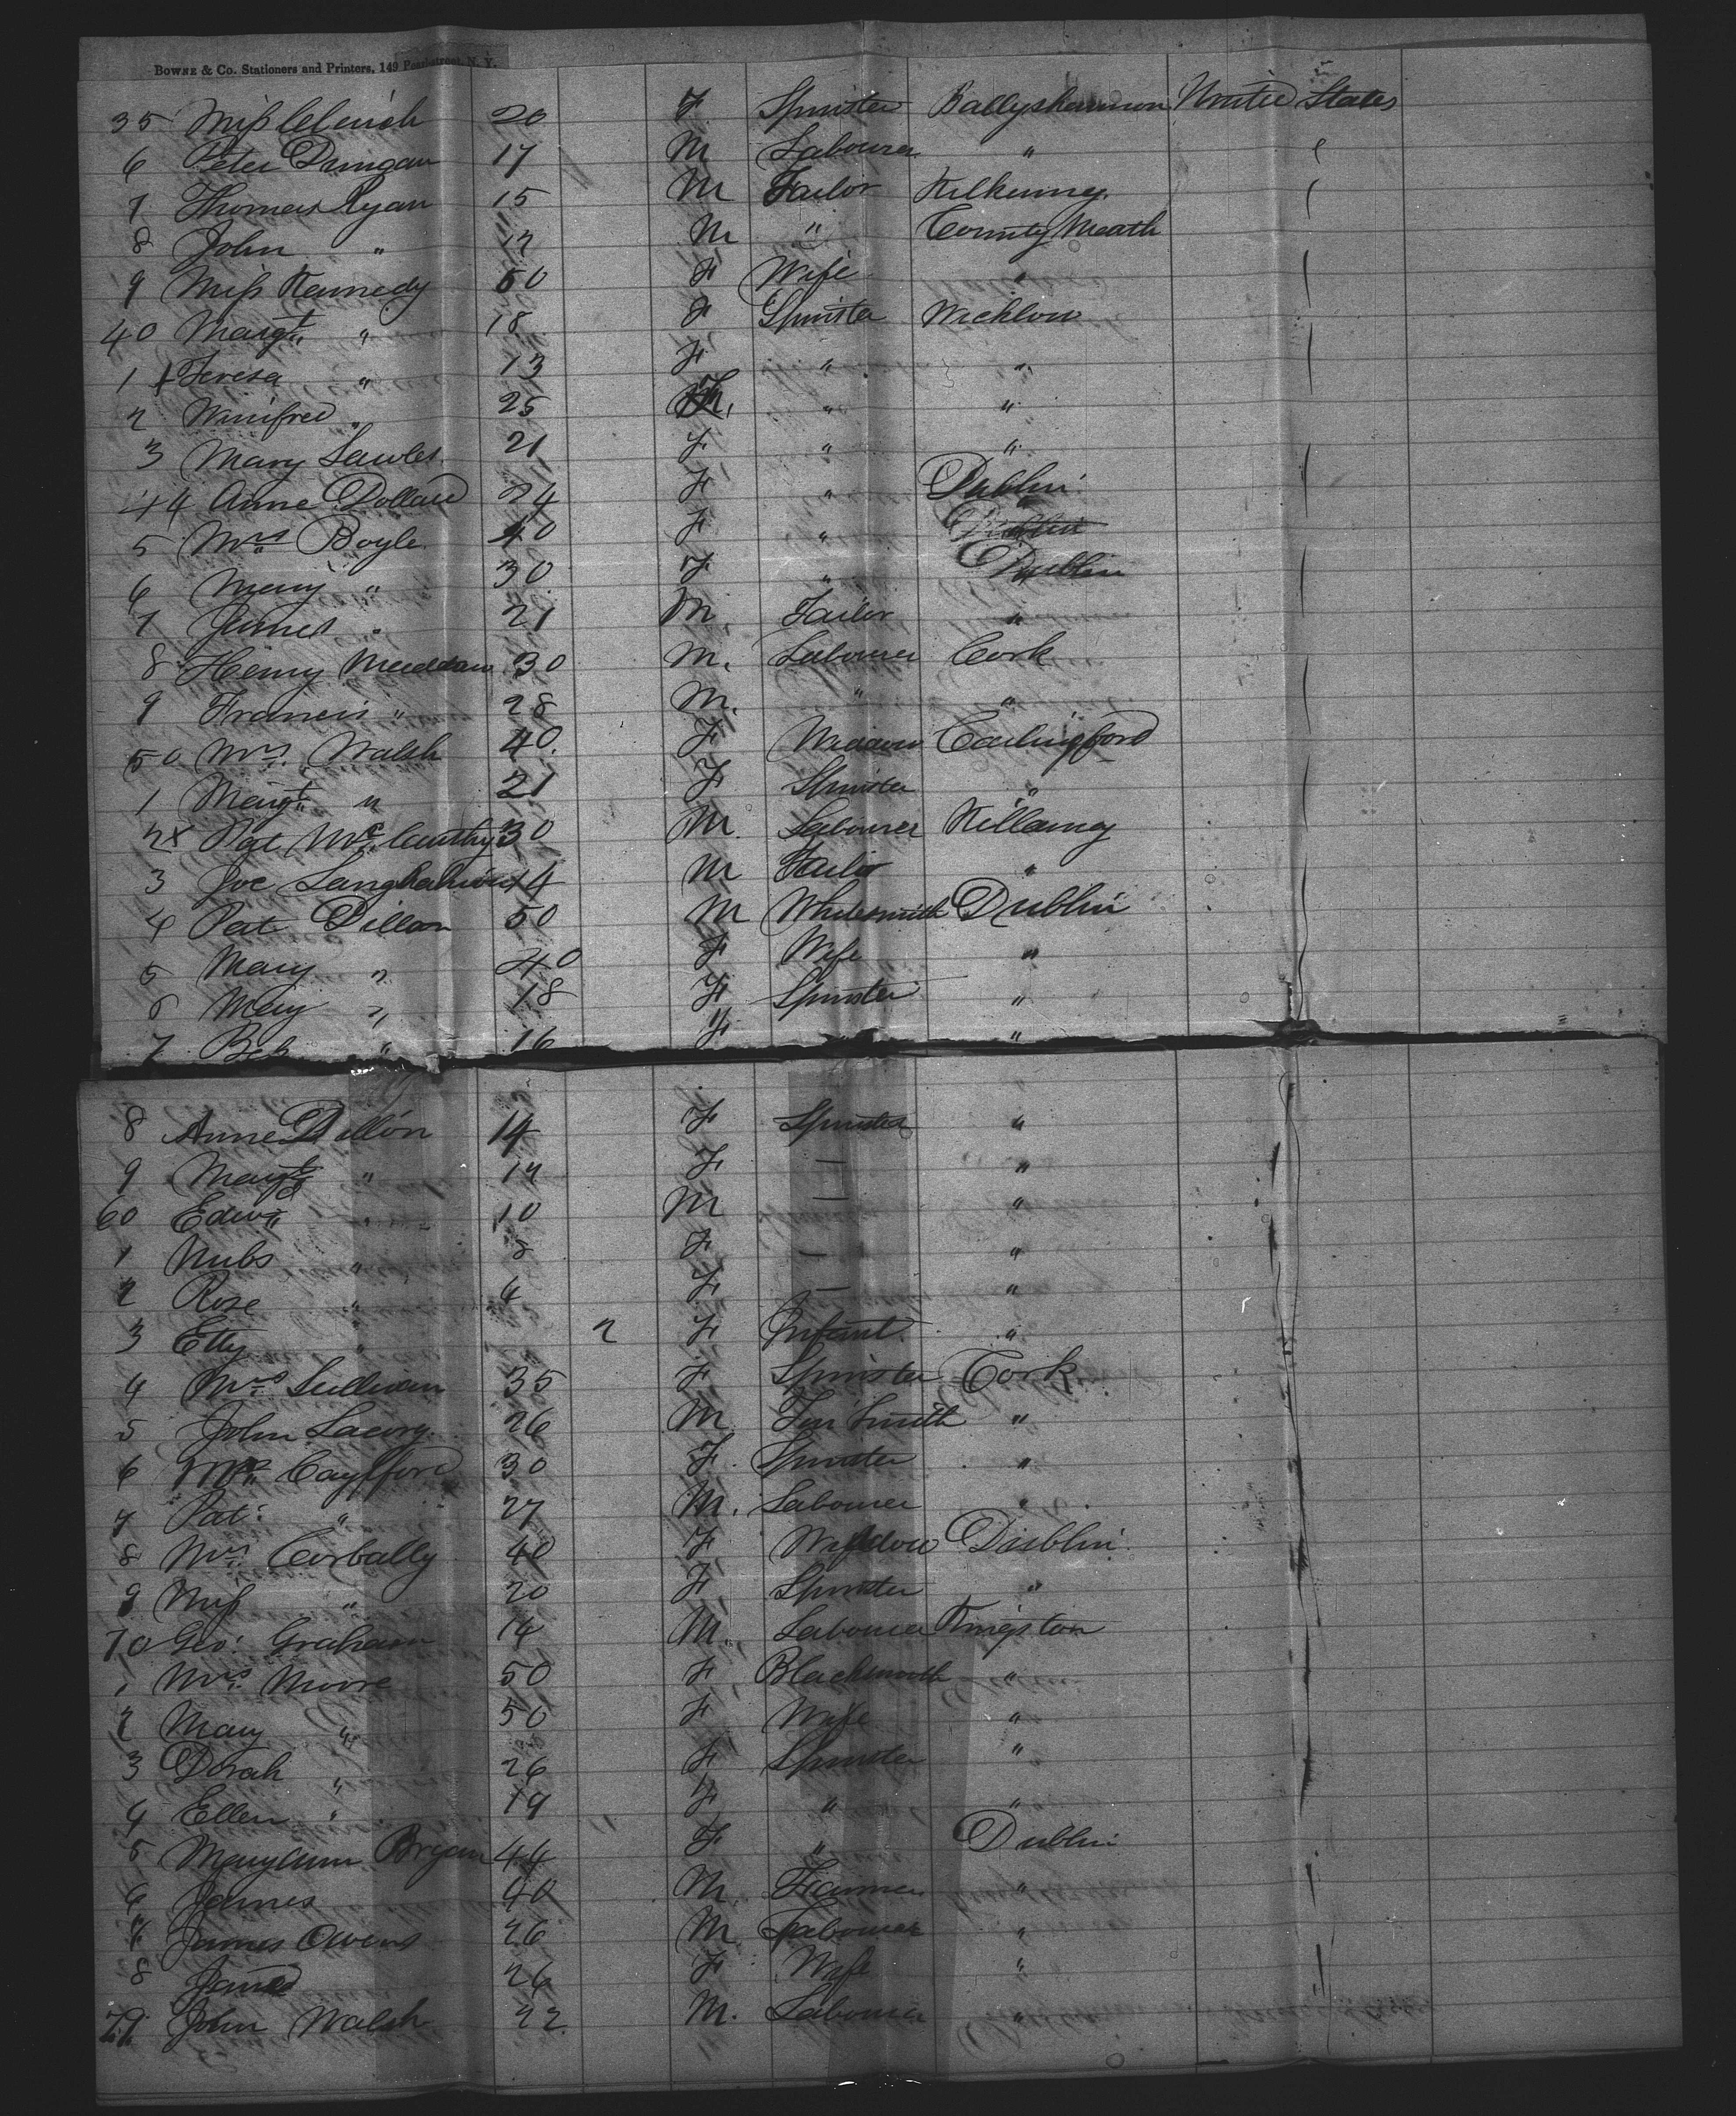 BOWNE & Co. Stationers and Printers, 149 Pearl-street, N. Y.
35 Miss 20 F Spinster Ballyshannon United States
6 Peter Dungan 17 M Labourer "
7 Thomas Ryan 15 M Tailor Kilkenny
8 John " M " County Meath
9 Miss Kennedy 50 F Wife "
40 Margt " 18 F Spinster Wicklow
1 Teresa " 13 F " "
2 Winifred " 25 F " "
3 Mary Lawles 21 F " "
44 Anne Dollard 24 F " Dublin
5 Mrs Boyle 40 F " Dublin
6 Mary " 30 F " Dublin
7 James " 21 M. Tailor "
8 Henry 30 M. Labourer Cork
9 Francis " 28 M. " "
50 Mrs. Walsh 40. F Widdow Carlingford
1 Margt " 21 F Spinster "
2x Pat McCarthy 30 M. Labourer Killarney
3 Joe 14 M Tailor "
4 Pat Dillon 50 M Whitesmith Dublin
5 Mary " 40 F Wife "
6 Mary " 18 F Spinster "
7 Beb " 16 F "
8 Anne Dillon 14 F Spinster "
9 Margt " 12 F — "
60 Edwd " 10 M — "
1 Nubs " 8 F — "
2 Rose " 4 F — "
3 Etty " 2 F Infant "
4 Mrs Sullivan 35 F Spinster Cork
5 John 26 M Tin Smith "
6 Mrs 30 F. Spinster "
7 Pat: " 27 M. Labourer "
8 Mrs. Corbally 40 F Widdow Dublin
9 Miss " 20 F Spinster "
70 Geo: Graham 14 M. Labourer Kingston
1 Mrs. Moore 50 F Blacksmith "
2 Mary " 50 F Wife "
3 Dorah " 26 F Spinster "
4 Ellen " 19 F " "
5 Maryann Bryan 44 F " Dublin
6 James 40 M. Farmer "
7 James Owens 26 M Labourer "
8 26 F Wife "
79 John Walsh 22 M. Labourer "